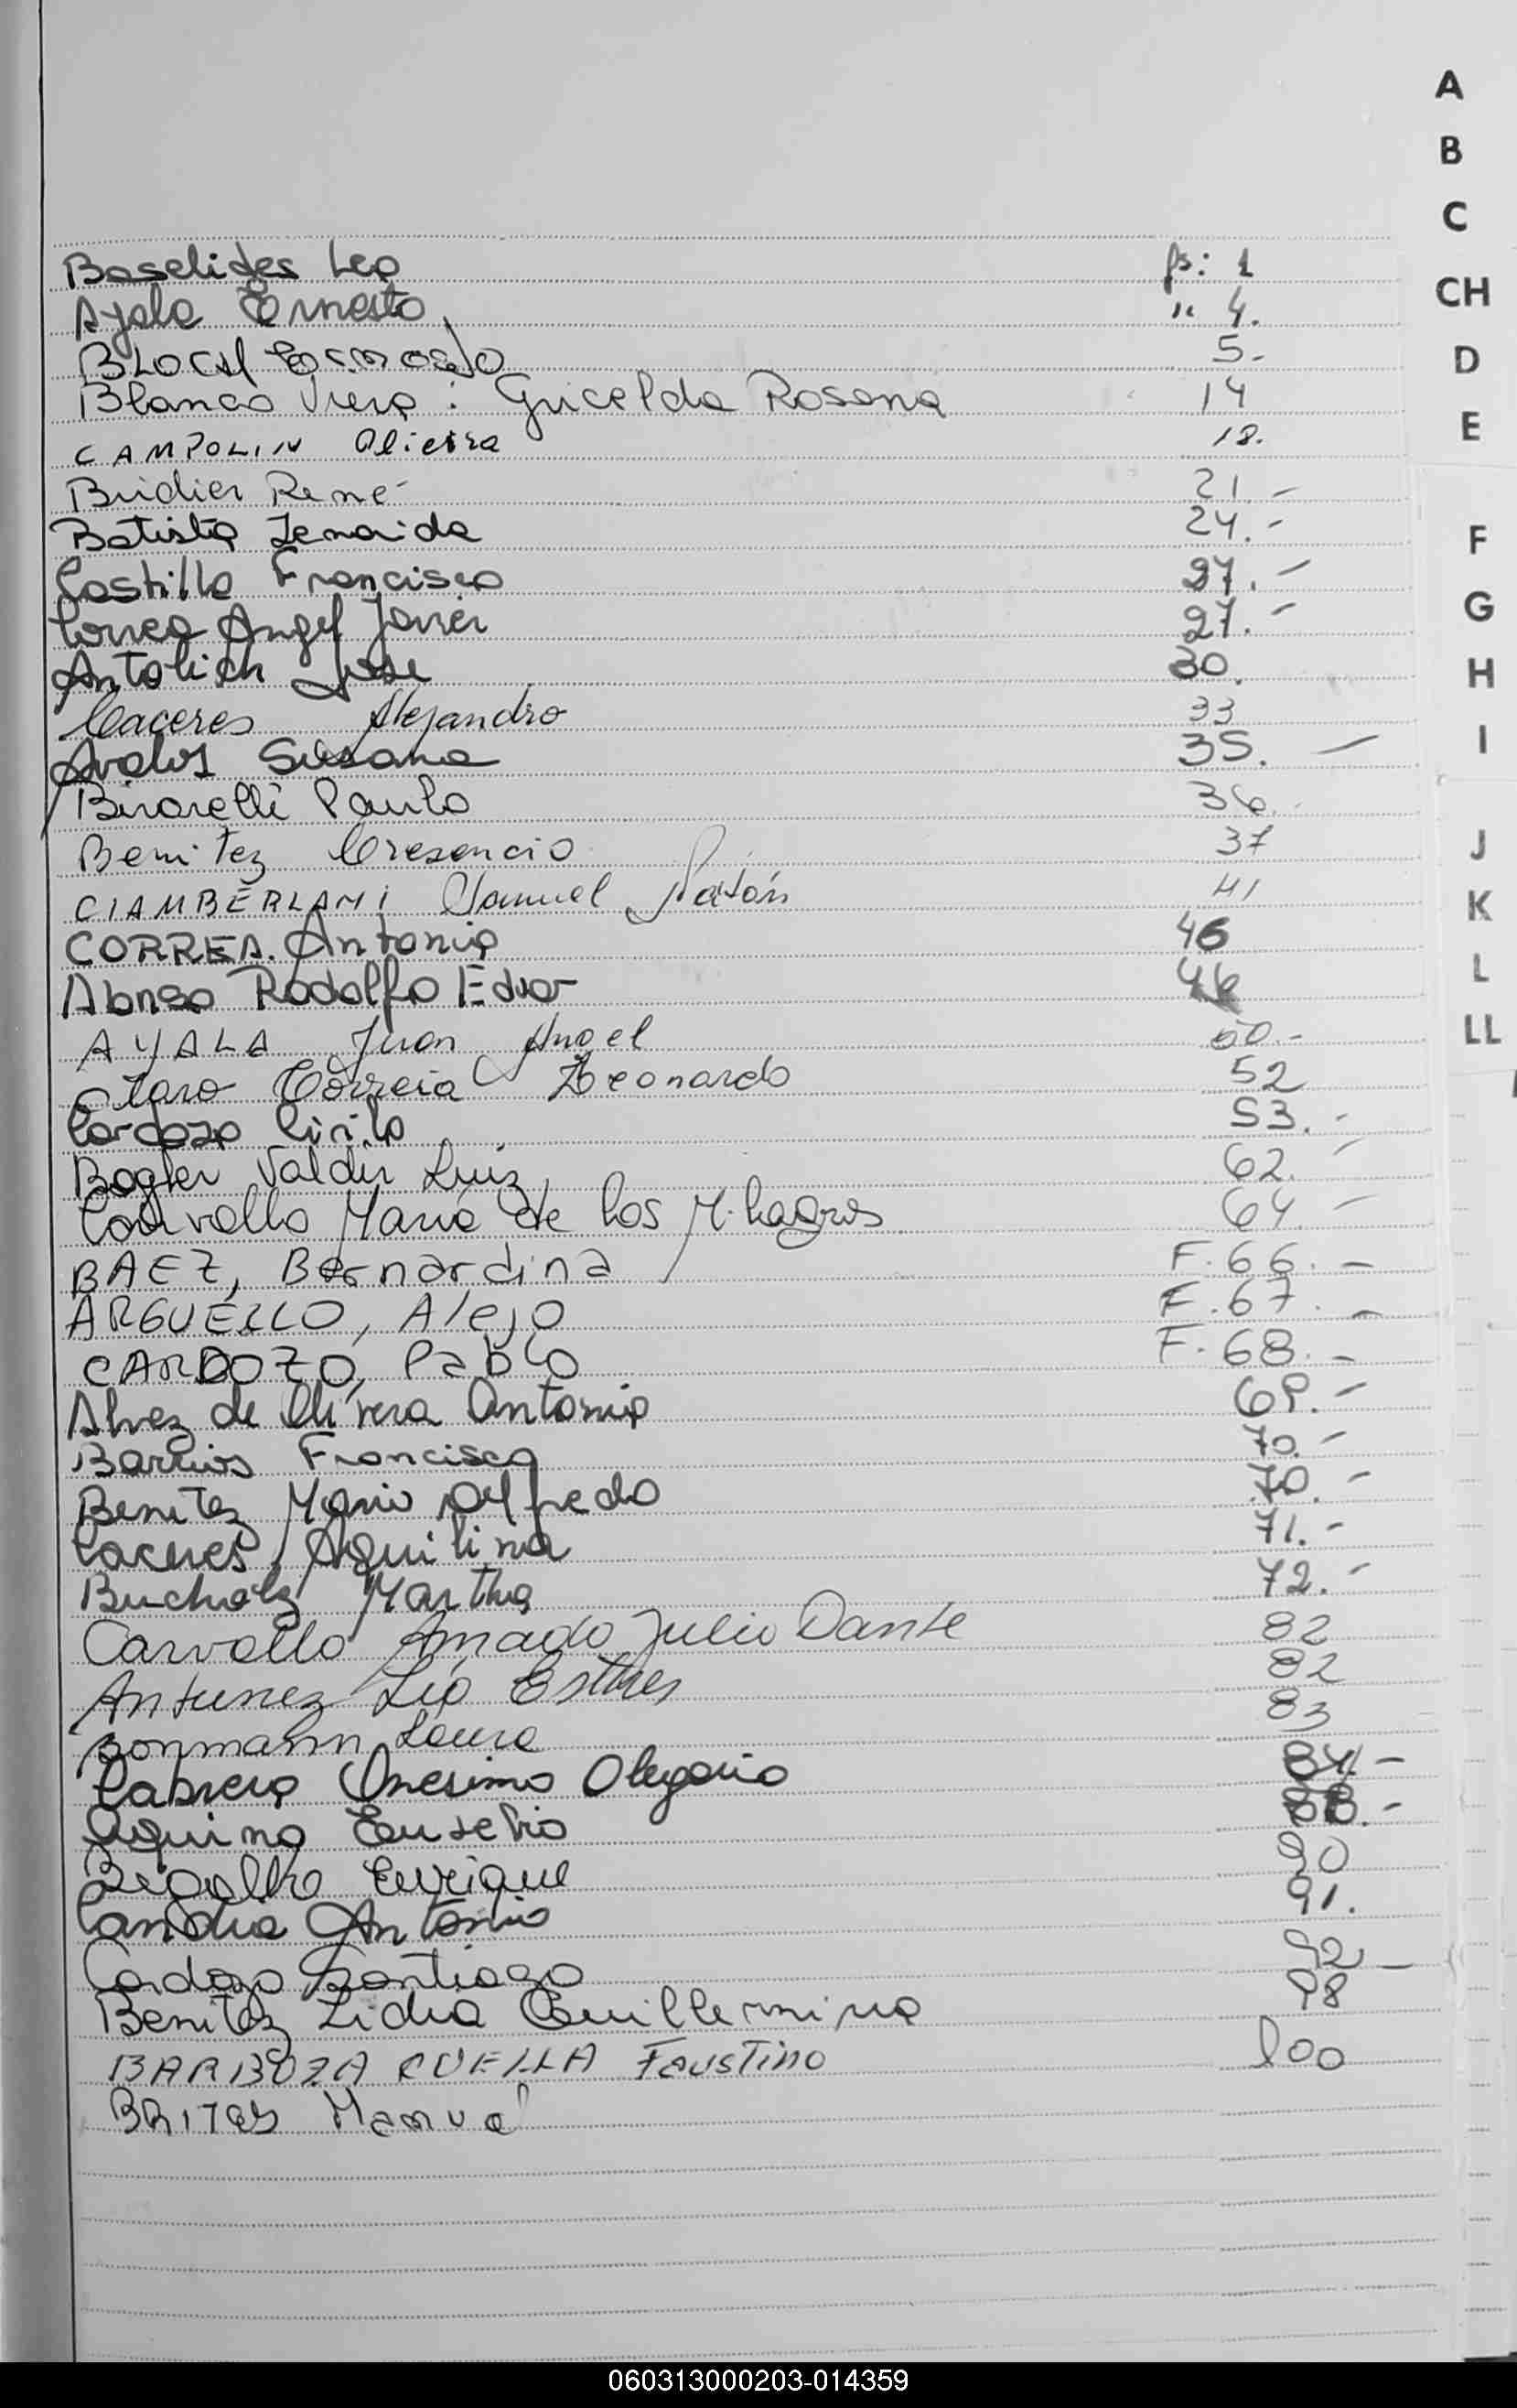 A
B
C
CH
D
E
F
G
H
I
J
K
L
LL
Baselides Leo fs: 1
Ayala Ernesto " 4.
5.-
Blanco Viera: Gricelda Rosana 14
CAMPOLIN Oliveira 18.
Bridier René 21.-
Batista Zenaida 24.-
Castillo Francisco 27.-
Correa Angel Javier 27.-
Antolich Jose 30.
Caceres Alejandro 33
Avalos Susana 35.-
Birarelli Paulo 36.-
Benitez Cresencio 37
CIAMBERLANI Samuel Natán 41
CORREA. Antonio 46
Alonso Rodolfo Edgar 46
AYALA Juan Angel 50.-
Claro Correia Leonardo 52
Cardozo Cirilo 53.-
Bogler Valdir Luiz 62.-
Carvallo Maria de los Milagros 64.-
BAEZ, Bernardina F.66.-
ARGUELLO, Alejo F.67.-
CARDOZO, Pablo F.68.-
Alvez de Olivera Antonio 69.-
Barrios Francisca 70.-
Benitez Mario Alfredo 70.-
Caceres, Aquilina 71.-
Bucholz Martha 72.-
Carvallo Amado Julio Dante 82
Antunez Lia Esther 82
Bonmann Laura 83
Cabrera Onesimo Olegario 84.-
Aquino Eusebio
Enrique 90
Candia Antonio 91.
Cardozo Santiago 92-
Benitez Lidia Guillermina 98
BARBOZA CUELLA Faustino 100
BRITES Manuel
060313000203-014359